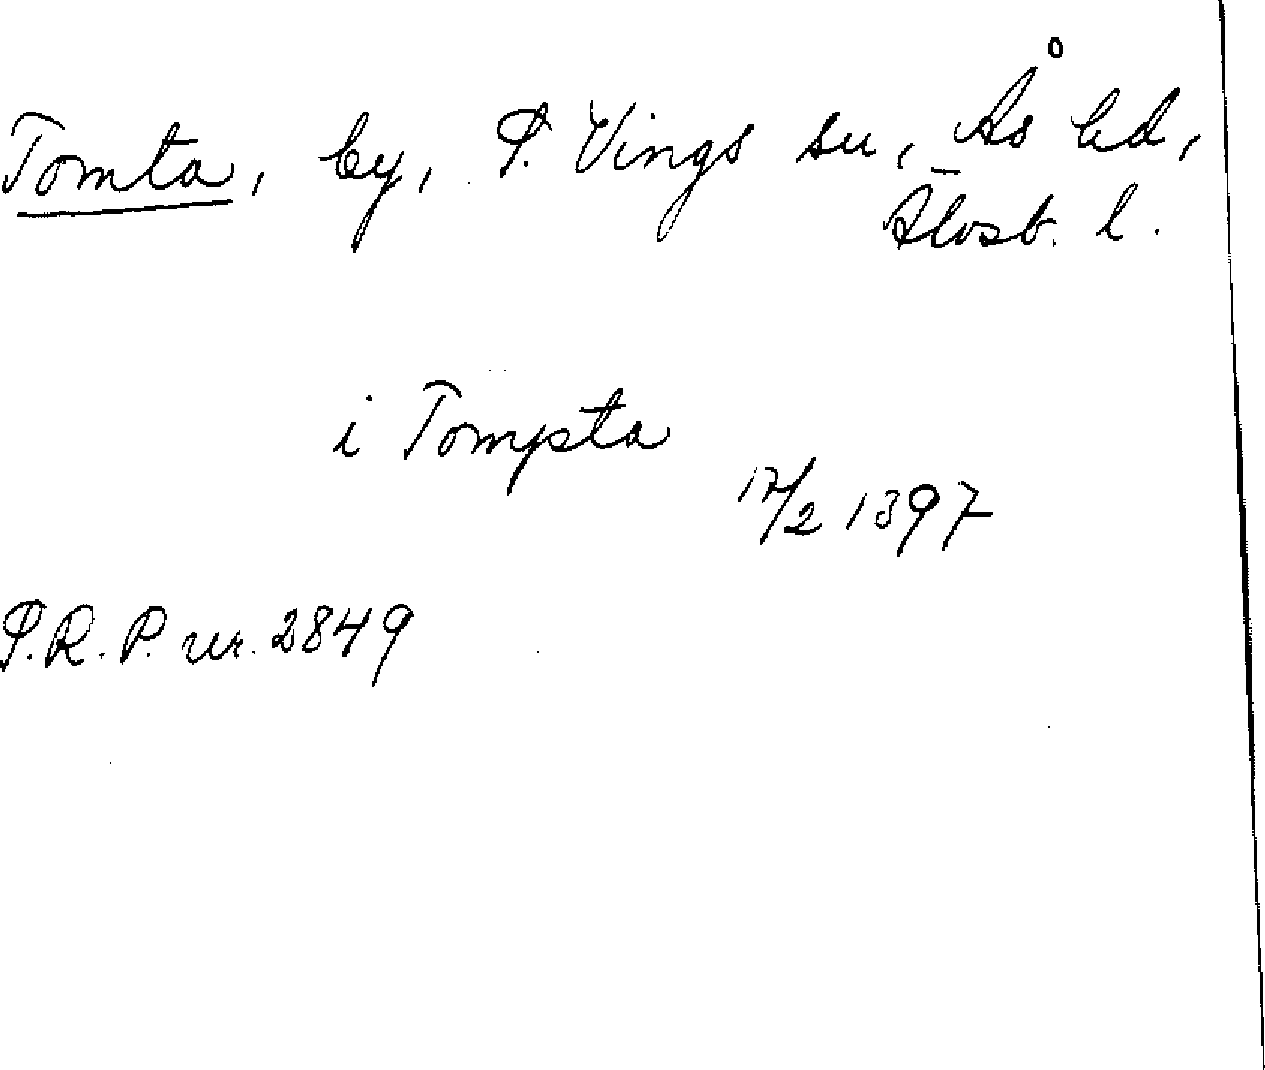 Tomta, by, S. Vings sn, Ås hd,
Älvsb. l.
i Tompta
17/2 1397
S.R.P. nr. 2849